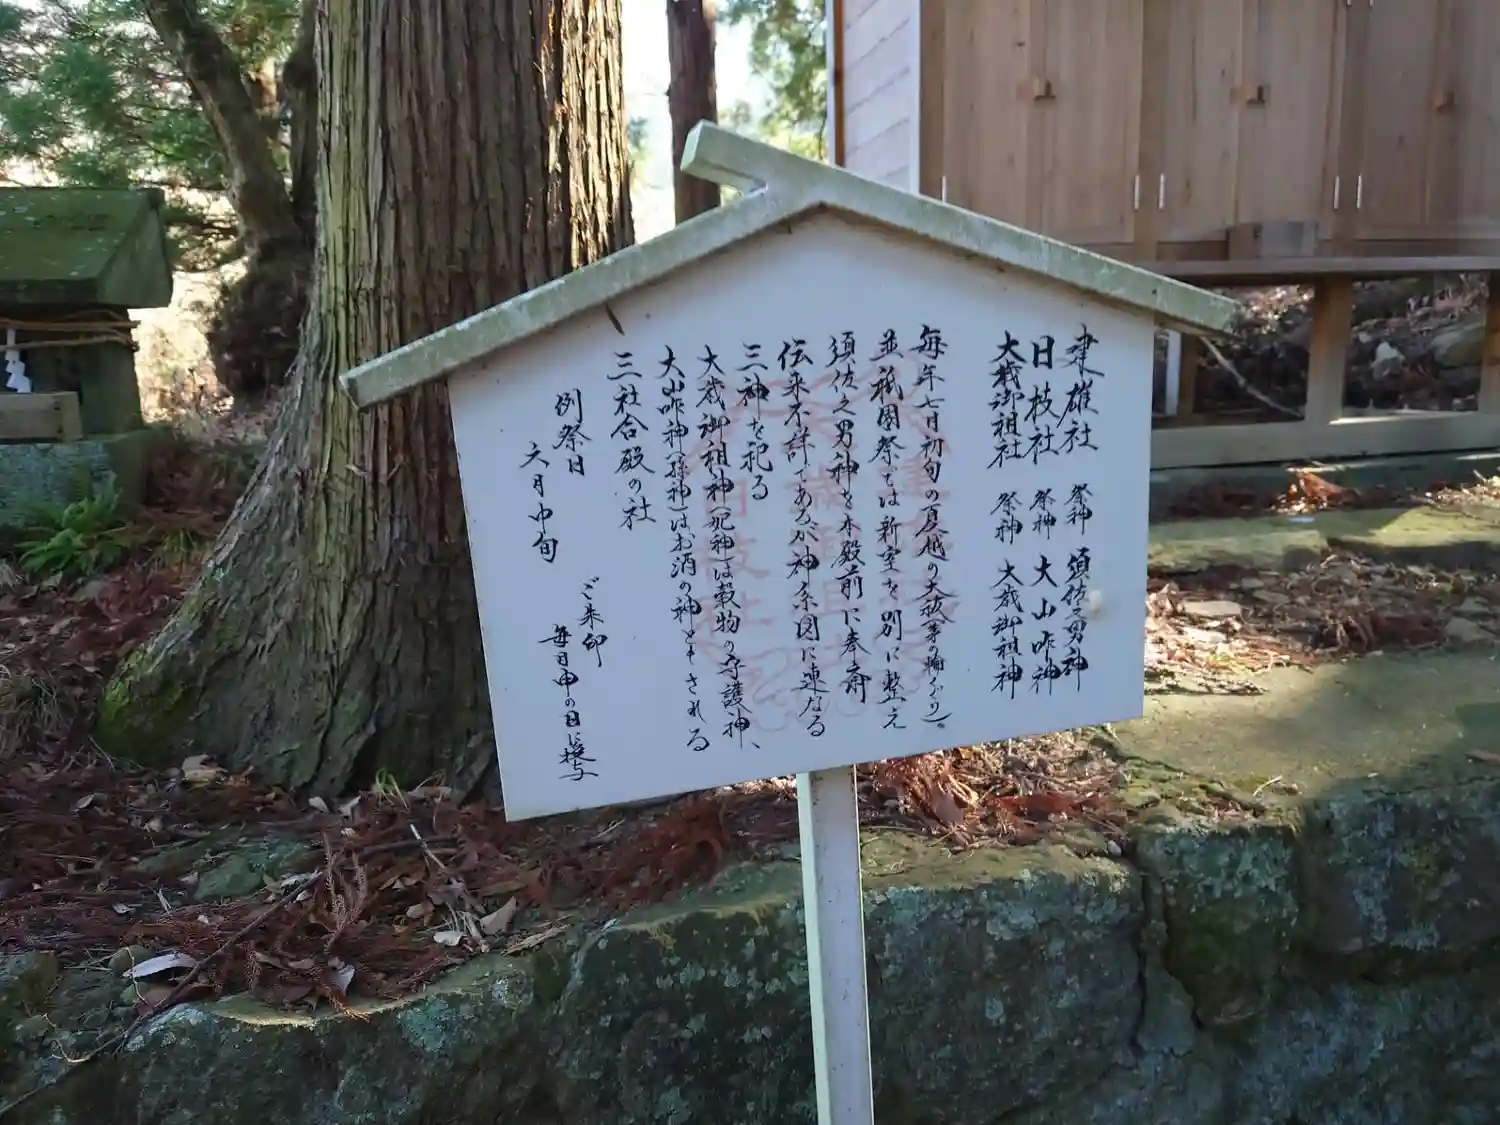 建雄社 祭神 須佐之男神
日枝社 祭神 大山咋神
大歳御祖社 祭神 大歳御祖神
毎年七月初旬の夏越の大祓(茅の輪くぐり)。
並祇園祭では新室を別に整え
須佐之男神を本殿前に奉斎
伝来不詳であるが神系図に連なる
三神を祀る
大歳御祖神(児神)は穀物の守護神、
大山咋神(孫神)はお酒の神ともされる
三社合殿の社
例祭日
六月中旬
ご来印
毎日申の日に授与